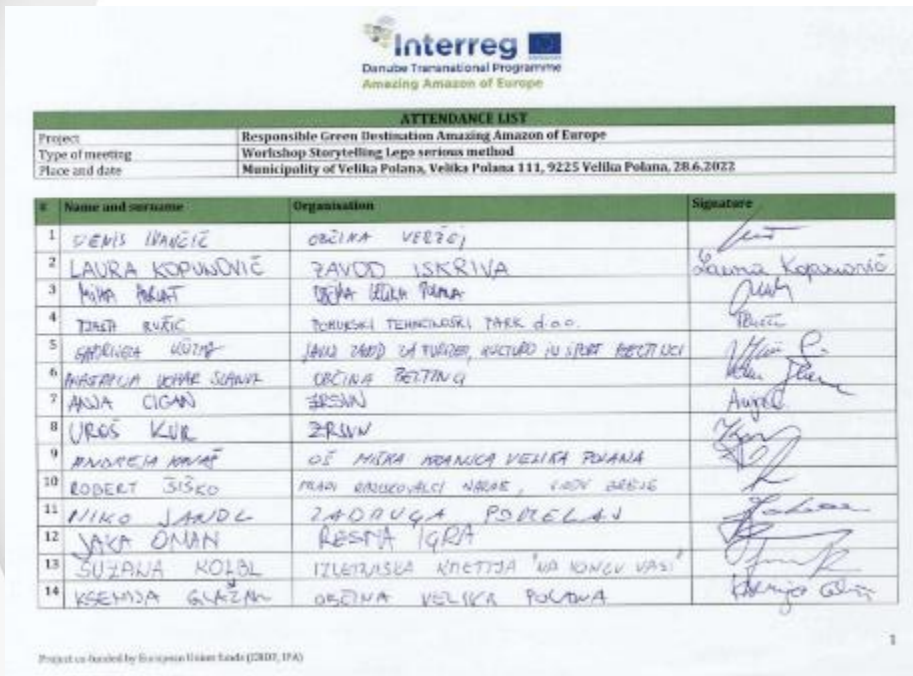 Interreg
Danube Transnational Programme
Amazing Amazon of Europe
ATTENDANCE LIST
Project Responsible Green Destination Amazing Amazon of Europe
Type of meeting Workshop Storytelling Lego serious method
Place and date Municipality of Velika Polana, Velika Polana 111, 9225 Velika Polana, 28.6.2022
# Name and surname Organisation Signature
1 DENIS IVANČIČ OBČINA VERŽEJ
2 LAURA KOPUNOVIČ ZAVOD ISKRIVA Laura Kopunovič
3 MIHA OBČINA VELIKA POLANA
4 RUŽIČ POMURSKI TEHNOLOŠKI PARK d.o.o.
5 GABRIJELA JAVNI ZAVOD ZA TURIZEM, KULTURO IN ŠPORT BELTINCI
6 OBČINA BELTINCI
7 ANJA CIGAN ZRSVN
8 UROŠ KUR ZRSVN
9 ANDREJA OŠ MIŠKA KRANJCA VELIKA POLANA
10 ROBERT ŠIŠKO MLADI
11 NIKO JANDL ZADRUGA POMELAJ
12 JAKA OMAN RESNA IGRA
13 SUZANA KOLBL IZLETNIŠKA KMETIJA "NA KONCU VASI"
14 KSENIJA GLAŽAR OBČINA VELIKA POLANA
1
Project co-funded by European Union funds (ERDF, IPA)